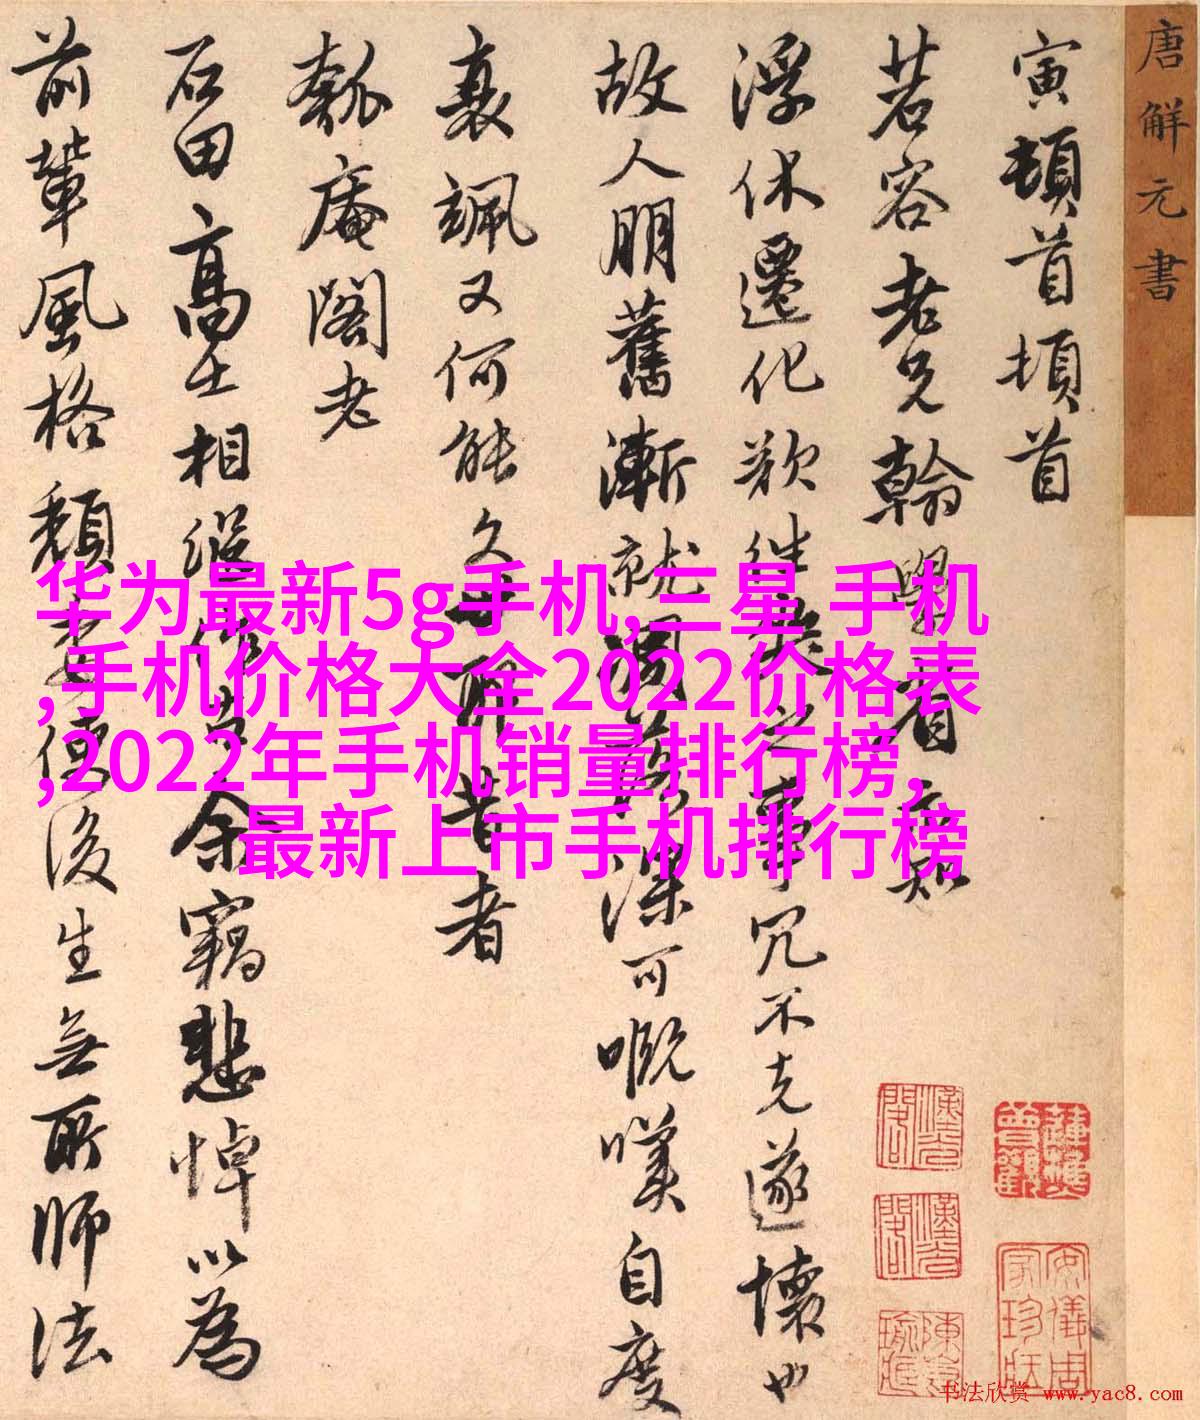 唐解元書
寅頓首頓首
茗容老兄翰學看 知
浮休遷化欲往 之事冗不克遂壞也
故人朋舊漸就凋落深可嘅嘆自度
衰颯又何能久 昔者
瓠庵閣老
石田高士相 余竊悲悼以為
前輩風格頹 後生無所師法
华为最新5g手机,三星 手机
,手机价格大全2022价格表
,2022年手机销量排行榜,
最新上市手机排行榜
书法欣赏 www.yac8.com